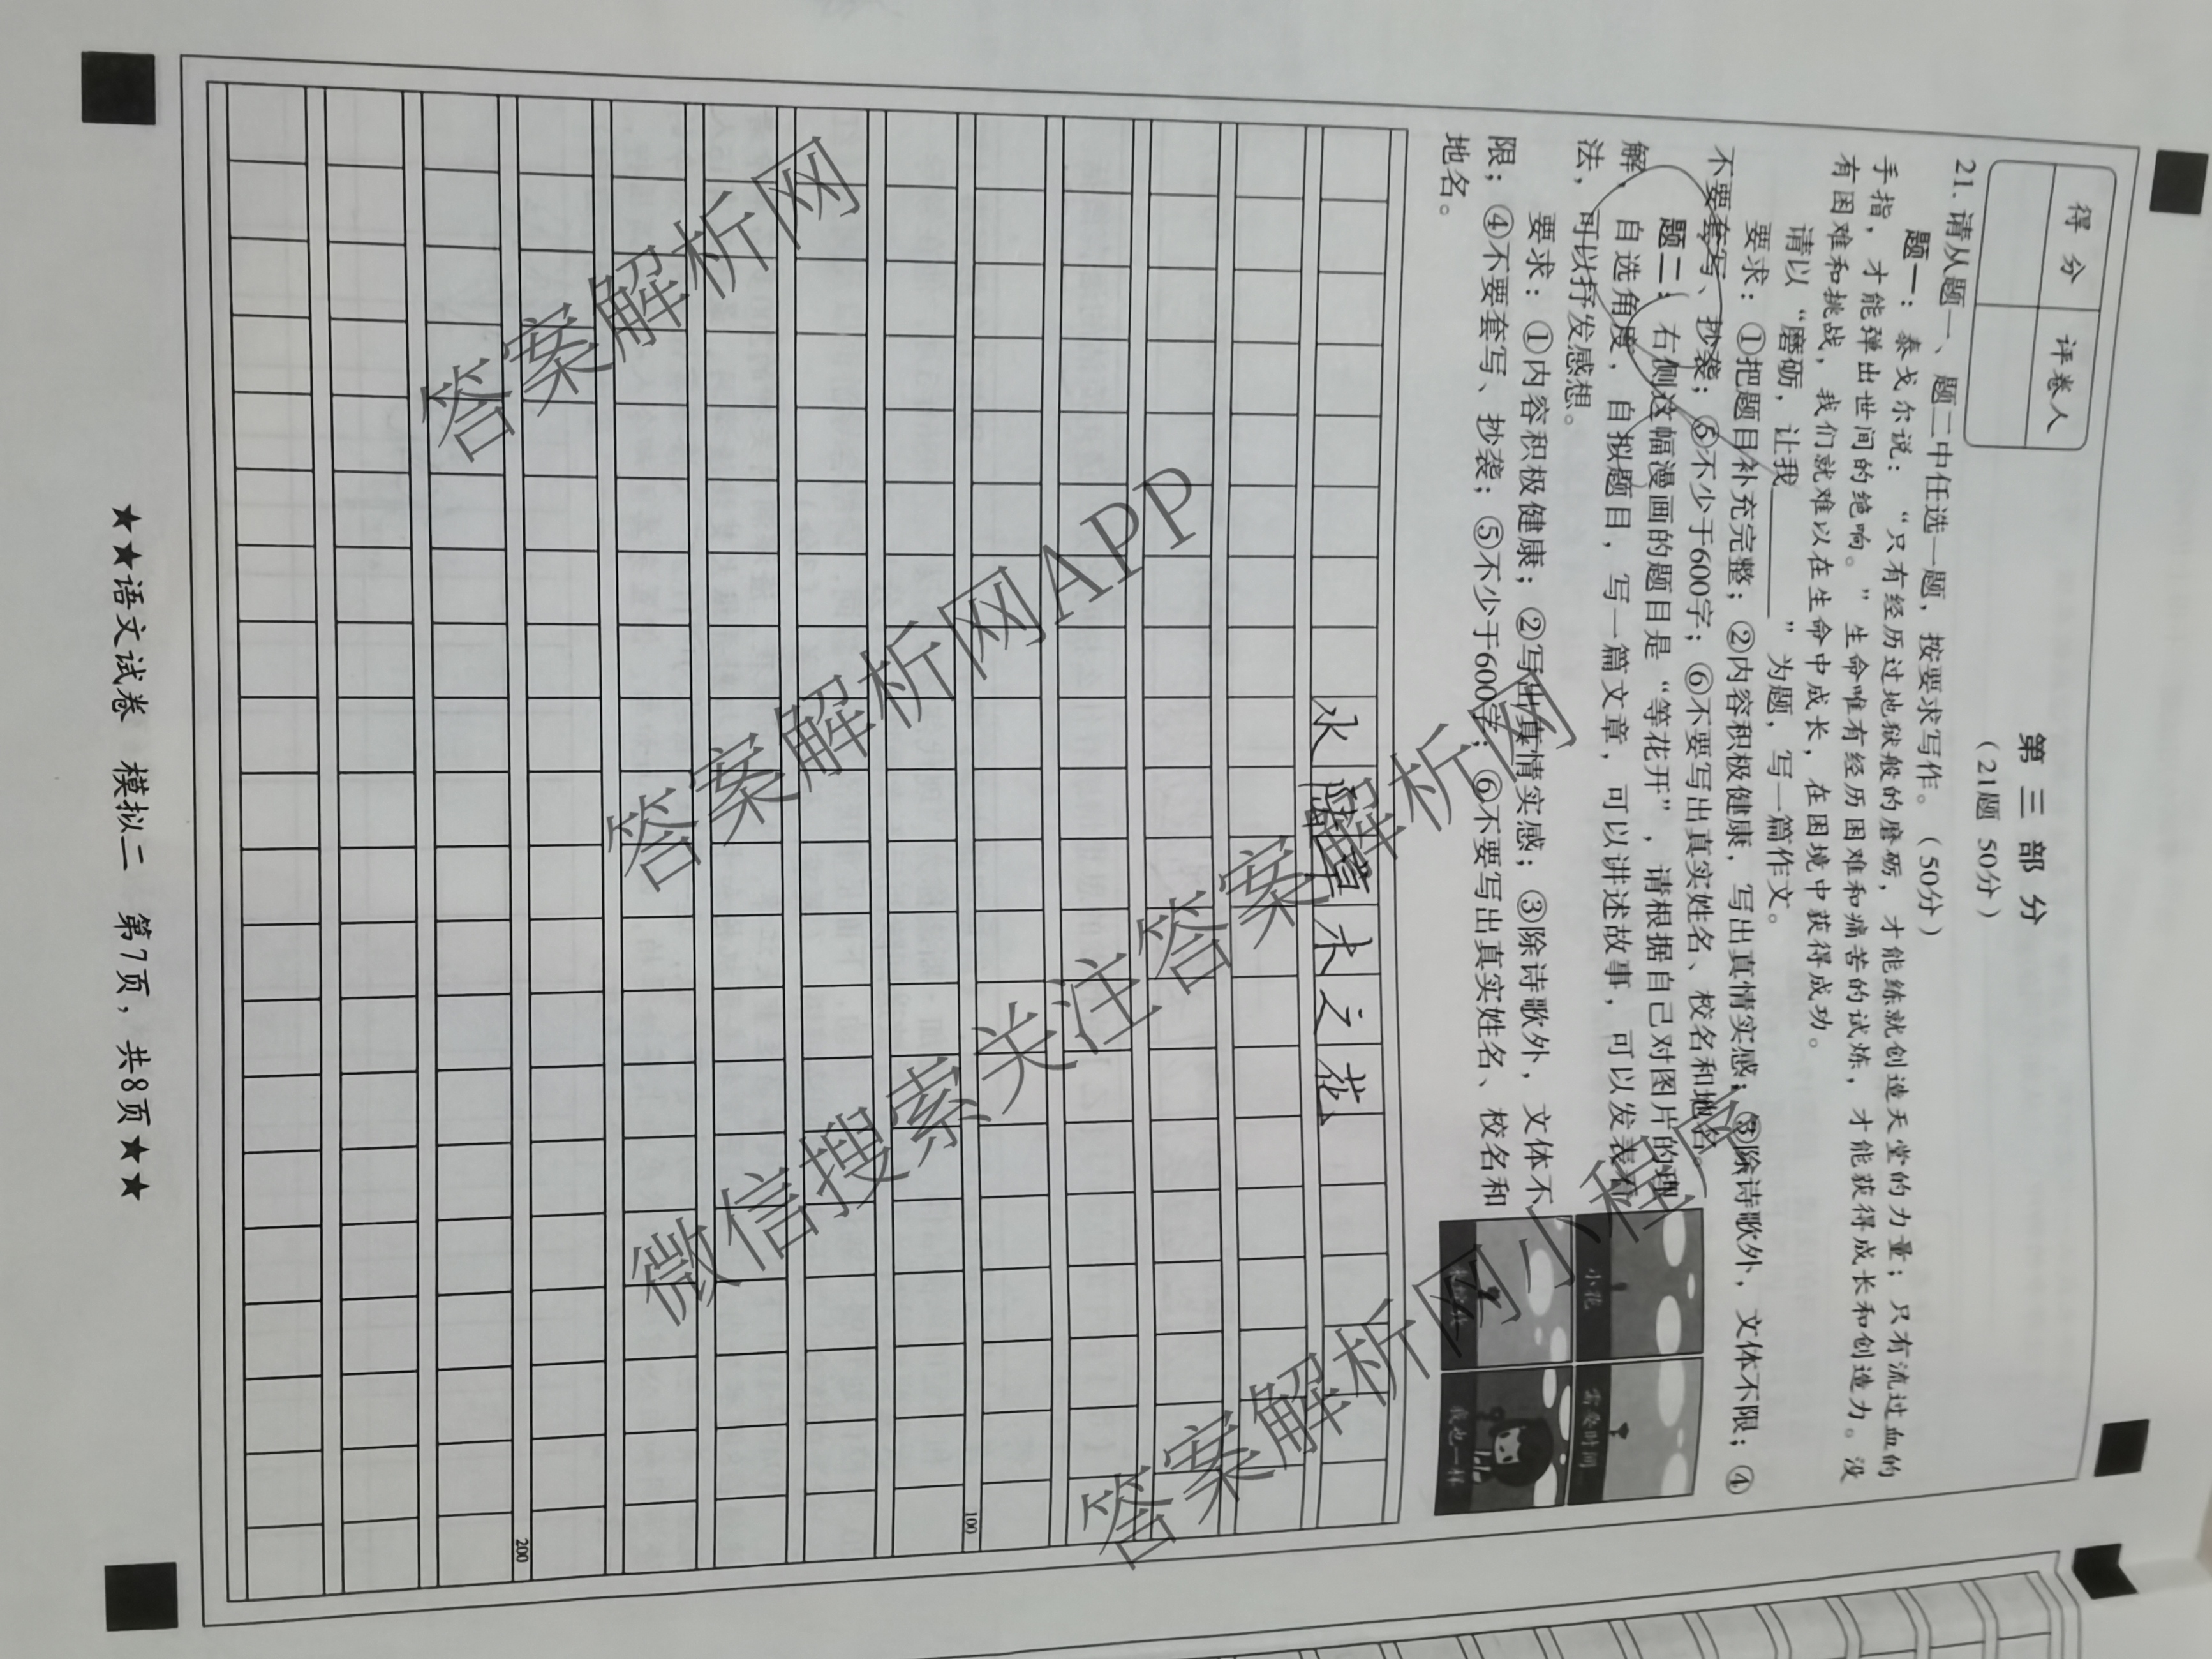 得分
评卷人
第三部分
（21题 50分）
21. 请从题一、题二中任选一题，按要求写作。（50分）
题一：泰戈尔说：“只有经历过地狱般的磨砺，才能练就创造天堂的力量；只有流过血的
手指，才能弹出世间的绝响。”生命唯有经历困难和痛苦的试炼，才能获得成长和创造力。没
有困难和挑战，我们就难以在生命中成长，在困境中获得成功。
请以“磨砺，让我________”为题，写一篇作文。
要求：①把题目补充完整；②内容积极健康，写出真情实感；③除诗歌外，文体不限；④
不要套写、抄袭；⑤不少于600字；⑥不要写出真实姓名、校名和地名。
题二：右侧这幅漫画的题目是“等花开”，请根据自己对图片的理
解，自选角度，自拟题目，写一篇文章，可以讲述故事，可以发表看
法，可以抒发感想。
要求：①内容积极健康；②写出真情实感；③除诗歌外，文体不
限；④不要套写、抄袭；⑤不少于600字；⑥不要写出真实姓名、校名和
地名。
小花
需要时间
我也一样
之花
100
200
★★语文试卷 模拟二 第7页，共8页★★
答案解析网
答案解析网APP
微信搜索关注答案解析网
答案解析网小程序